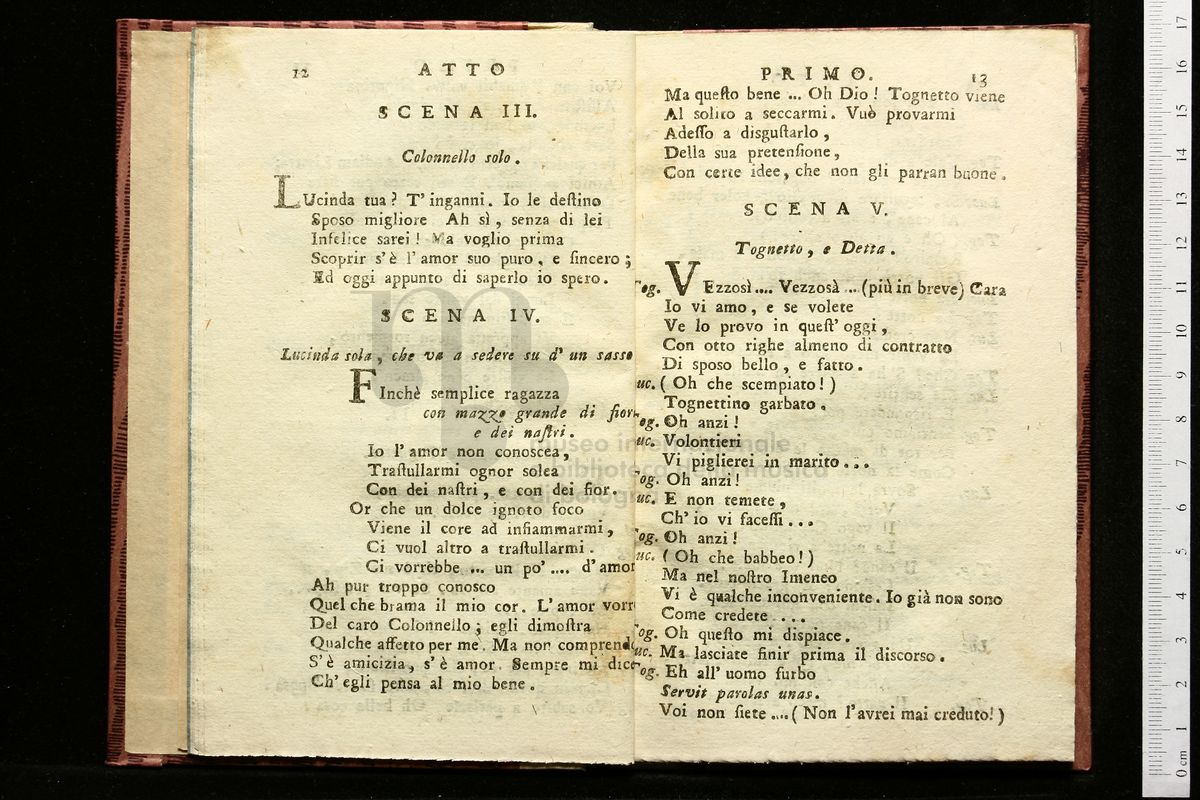 12 ATTO
SCENA III.
Colonnello solo.
LUcinda tua? T'inganni. Io le deſtino
Spoſo migliore Ah sì, senza di lei
Infelice sarei! Ma voglio prima
Scoprir s'è l'amor suo puro, e ſincero;
Ed oggi appunto di saperlo io spero.
SCENA IV.
Lucinda sola, che va a sedere su d'un sasso
FInchè semplice ragazza
con mazzo grande di fior
e dei naſtri.
Io l'amor non conoscea,
Traſtullarmi ognor solea
Con dei naſtri, e con dei fior.
Or che un dolce ignoto foco
Viene il core ad infiammarmi,
Ci vuol altro a traſtullarmi.
Ci vorrebbe ... un po' .... d'amor
Ah pur troppo conosco
Quel che brama il mio cor. L'amor vorr
Del caro Colonnello; egli dimoſtra
Qualche affetto per me. Ma non comprend
S'è amicizia, s'è amor. Sempre mi dice
Ch'egli pensa al mio bene.
PRIMO. 13
Ma queſto bene ... Oh Dio! Tognetto viene
Al solito a seccarmi. Vuò provarmi
Adeſſo a disguſtarlo,
Della sua pretenſione,
Con certe idee, che non gli parran buone.
SCENA V.
Tognetto, e Detta.
og. VEzzosì.... Vezzosà ... (più in breve) Cara
Io vi amo, e se volete
Ve lo provo in queſt'oggi,
Con otto righe almeno di contratto
Di sposo bello, e fatto.
uc. (Oh che scempiato!)
Tognettino garbato.
og. Oh anzi!
uc. Volontieri
Vi piglierei in marito...
og. Oh anzi!
uc. E non temete,
Ch'io vi faceſſi...
og. Oh anzi!
uc. (Oh che babbeo!)
Ma nel noſtro Imeneo
Vi è qualche inconveniente. Io già non sono
Come credete ...
og. Oh queſto mi dispiace.
uc. Ma lasciate finir prima il discorso.
og. Eh all'uomo furbo
Servit parolas unas.
Voi non ſiete .... (Non l'avrei mai creduto!)
museo internazionale
biblioteca della musica
di bologna
0 cm 1 2 3 4 5 6 7 8 9 10 11 12 13 14 15 16 17